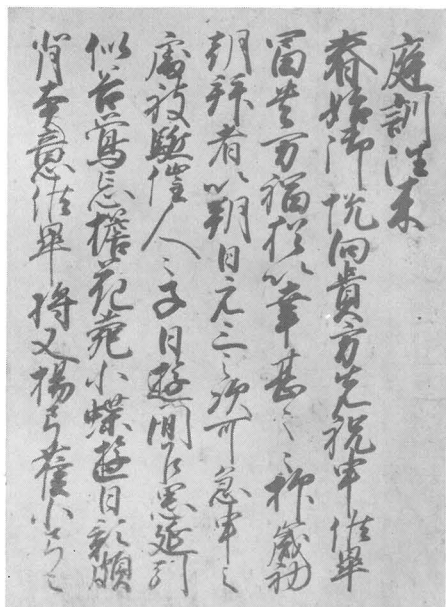 庭訓往来
春始御悦向貴方先祝申候畢
冨貴万福猶以幸甚々々抑歳初
朝拝者以朔日元三之次可急申之
處被駈催人々子日遊間乍思延引
似谷鶯忘檐花苑小蝶遊日影頗
背本意候畢将又楊弓雀小弓之